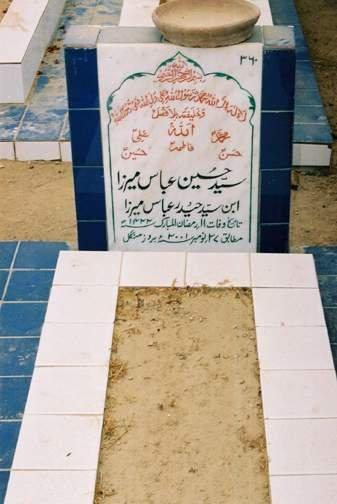 ۳۶۰
بسم اللہ الرحمٰن الرحیم
لا الہ الا اللہ محمد رسول اللہ علی ولی اللہ وصی رسول اللہ
وخلیفتہ بلا فصل
محمدؐ اللہ علیؑ
حسنؑ فاطمہؑ حسینؑ
سید حسین عباس میرزا
ابن سید حیدر عباس میرزا
تاریخ وفات ۱۱ رمضان المبارک ۱۴۲۲ھ
مطابق ۲۷ نومبر ۲۰۰۱ء بروز منگل